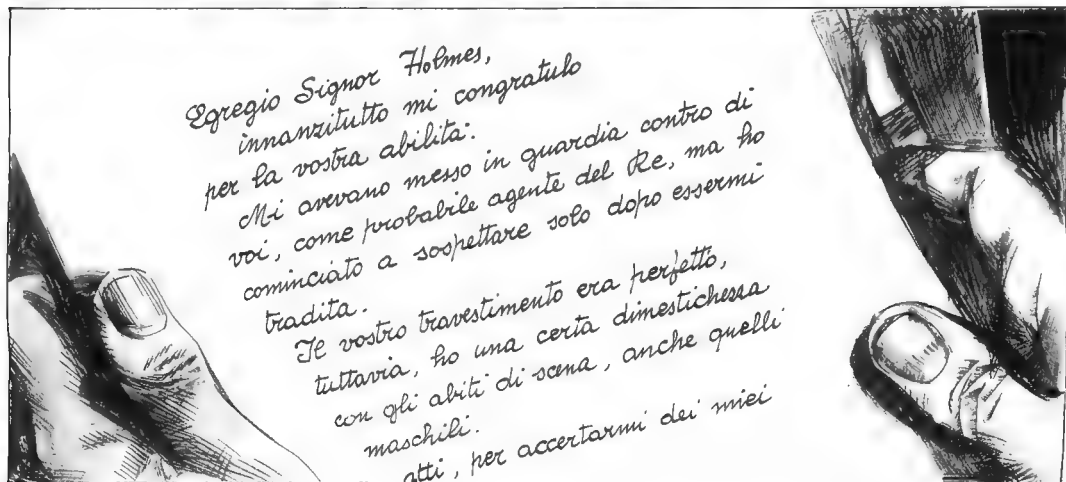 Egregio Signor Holmes,
innanzitutto mi congratulo
per la vostra abilità.
Mi avevano messo in guardia contro di
voi, come probabile agente del Re, ma ho
cominciato a sospettare solo dopo essermi
tradita.
Il vostro travestimento era perfetto,
tuttavia, ho una certa dimestichezza
con gli abiti di scena, anche quelli
maschili.
atti, per accertarmi dei miei